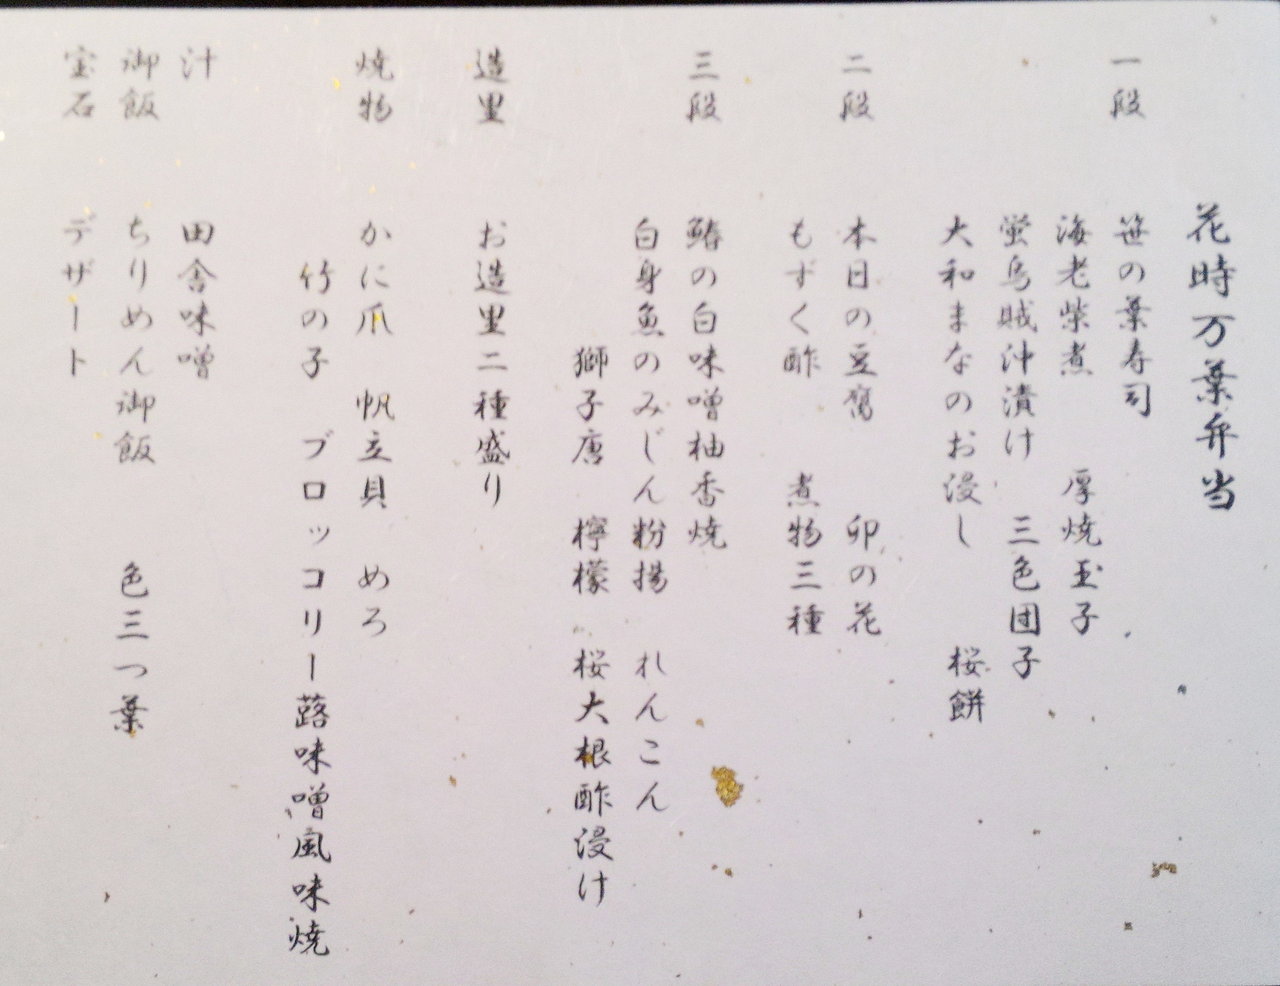 花時万葉弁当
一段 笹の葉寿司
海老柴煮 厚焼玉子
蛍烏賊沖漬け 三色団子
大和まなのお浸し 桜餅
二段 本日の豆腐 卯の花
もずく酢 煮物三種
三段 鰆の白味噌柚香焼
白身魚のみじん粉揚 れんこん
獅子唐 檸檬 桜大根酢浸け
造里 お造里二種盛り
焼物 かに爪 帆立貝 めろ
竹の子 ブロッコリー蕗味噌風味焼
汁 田舎味噌
御飯 ちりめん御飯 色三つ葉
宝石 デザート